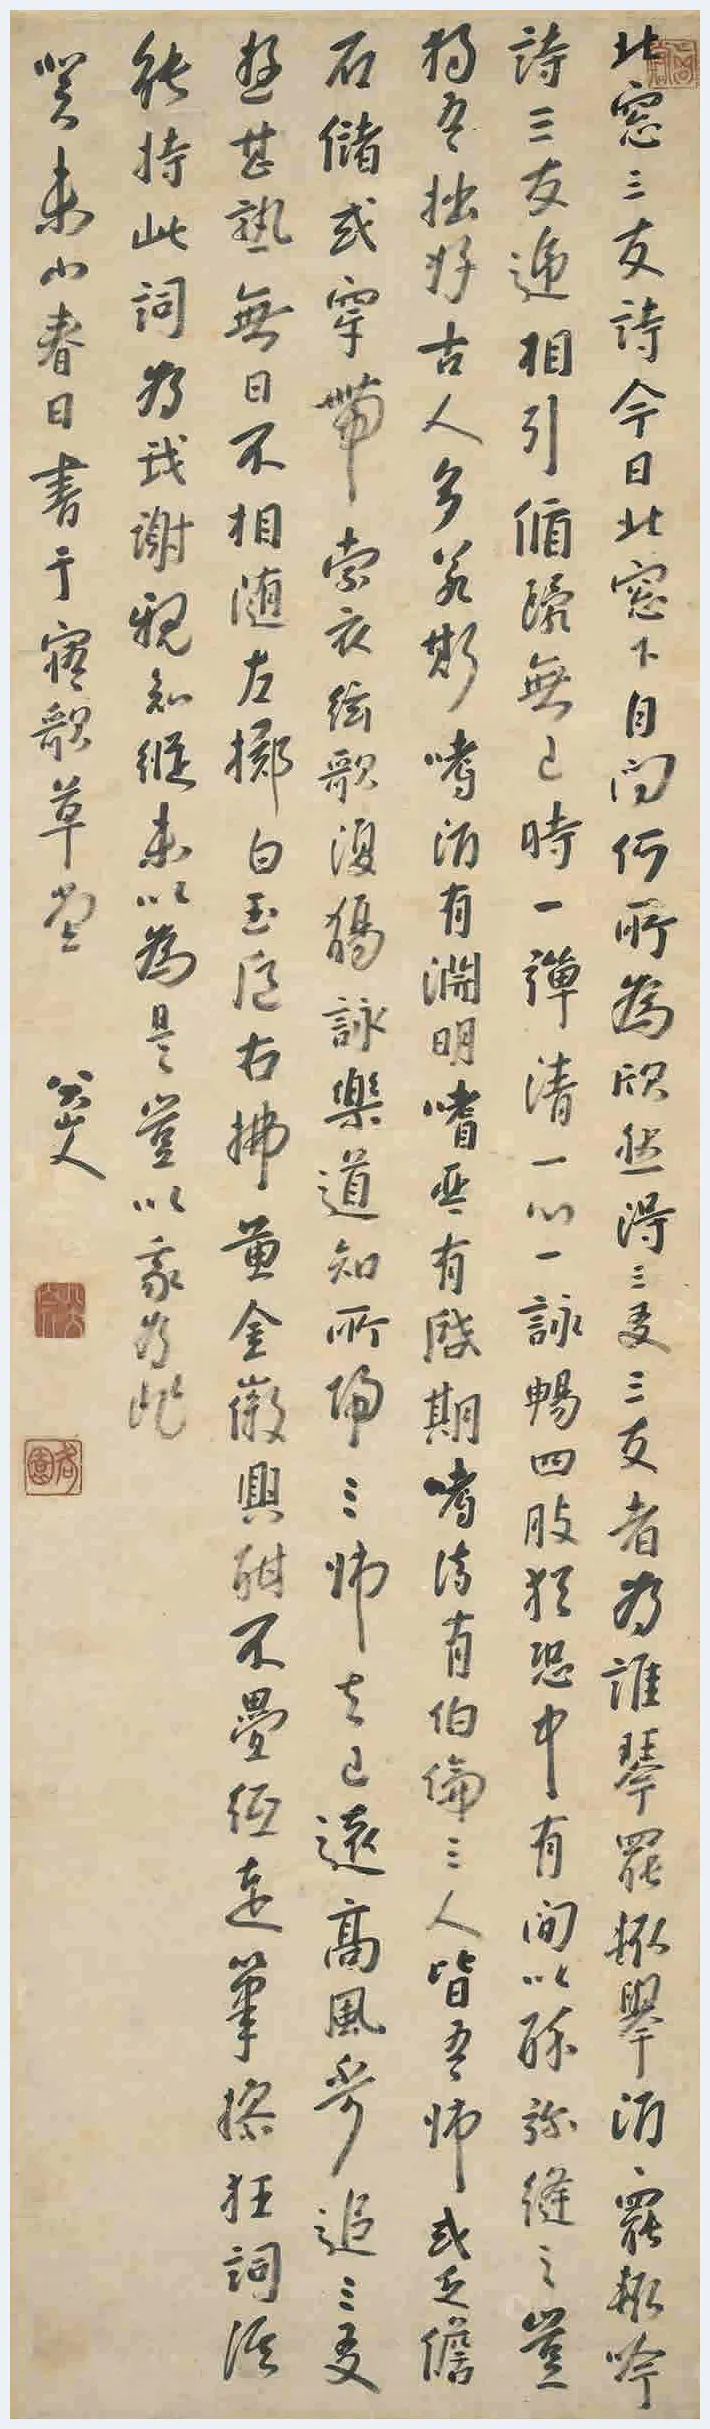 北窓三友詩今日北窓下自问何所為欣然得三友三友者为誰琴罷輒舉酒酒罷輒吟
詩三友遞相引循環無已時一彈清一心一詠暢四肢猶恐中有间以酔弥縫之豈
独吾拙好古人多若斯嗜酒有淵明嗜琴有啟期嗜诗有伯倫三人皆吾师或乏儋
石儲或穿帶索衣絃歌復觴詠樂道知所歸三师去已遠高風莫追三友
遊甚熟無日不相随左擲白玉卮右拂黄金徽興酣不疊紙走筆操狂詞谁
能持此詞为我謝親知縱未以為是豈以我为非
癸未小春日書于寤歌草堂 八大山人